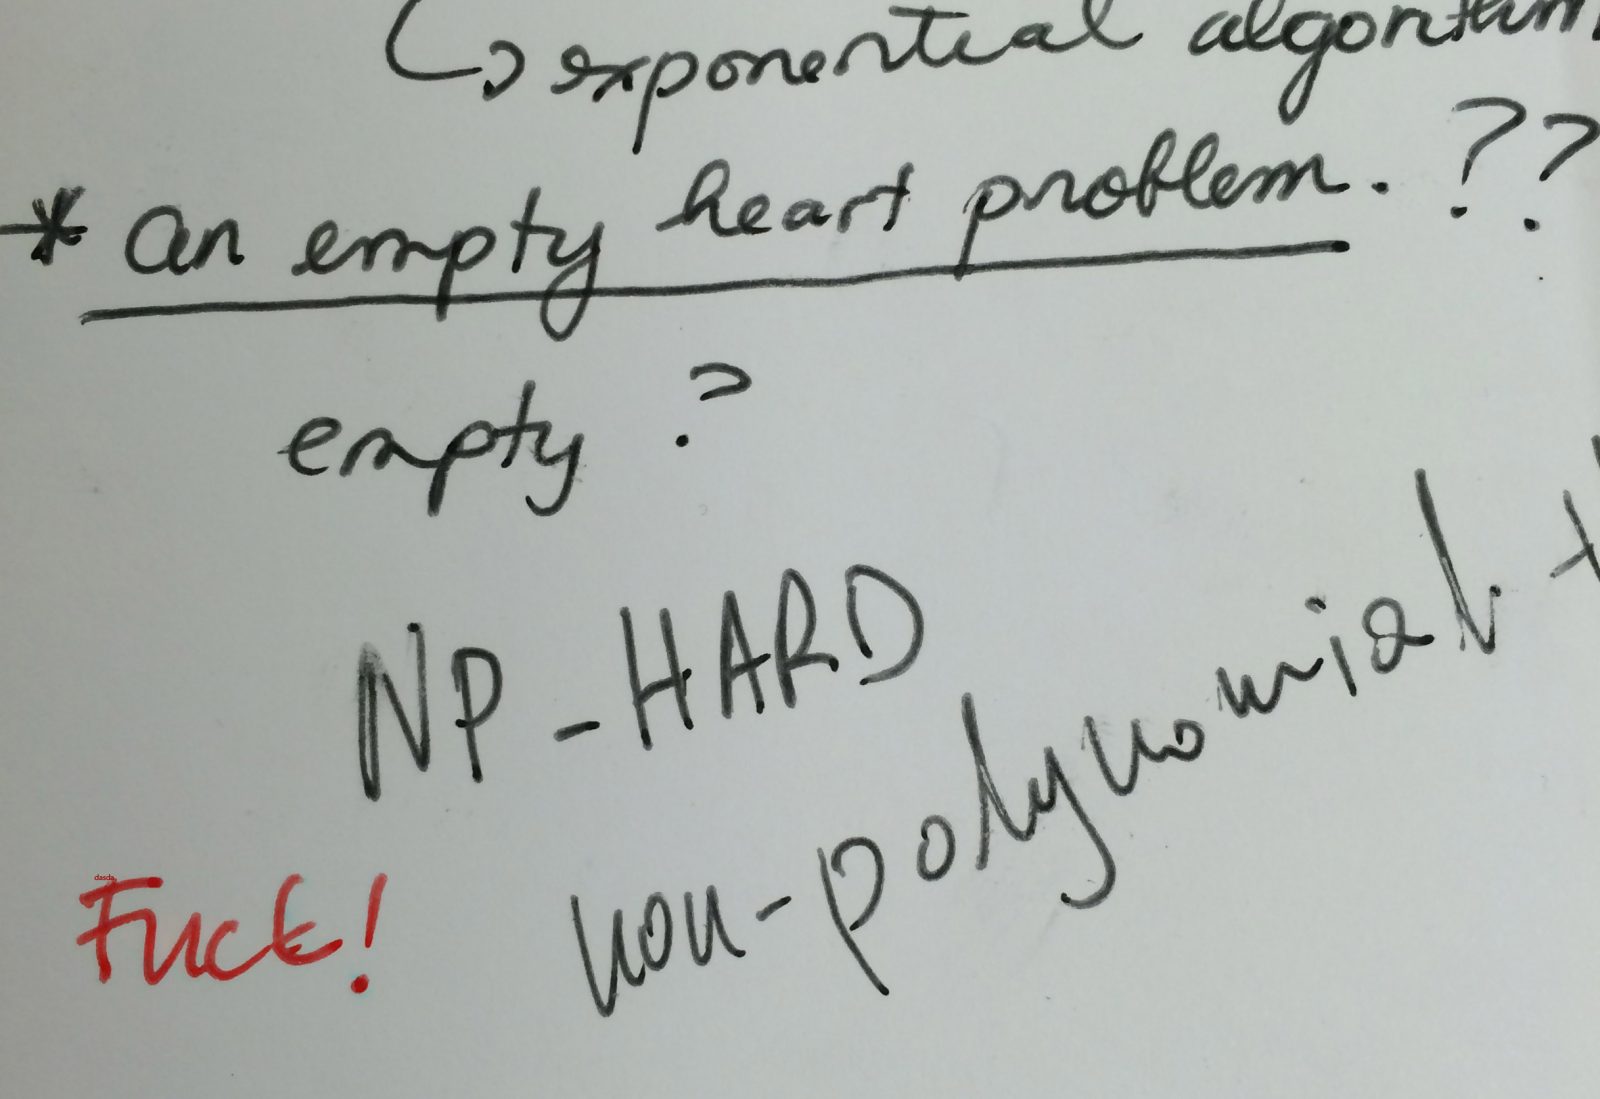 ↳ exponential algorithm
* an empty heart problem. ??
empty ?
NP-HARD
non-polynomial
dasda
Fuck!